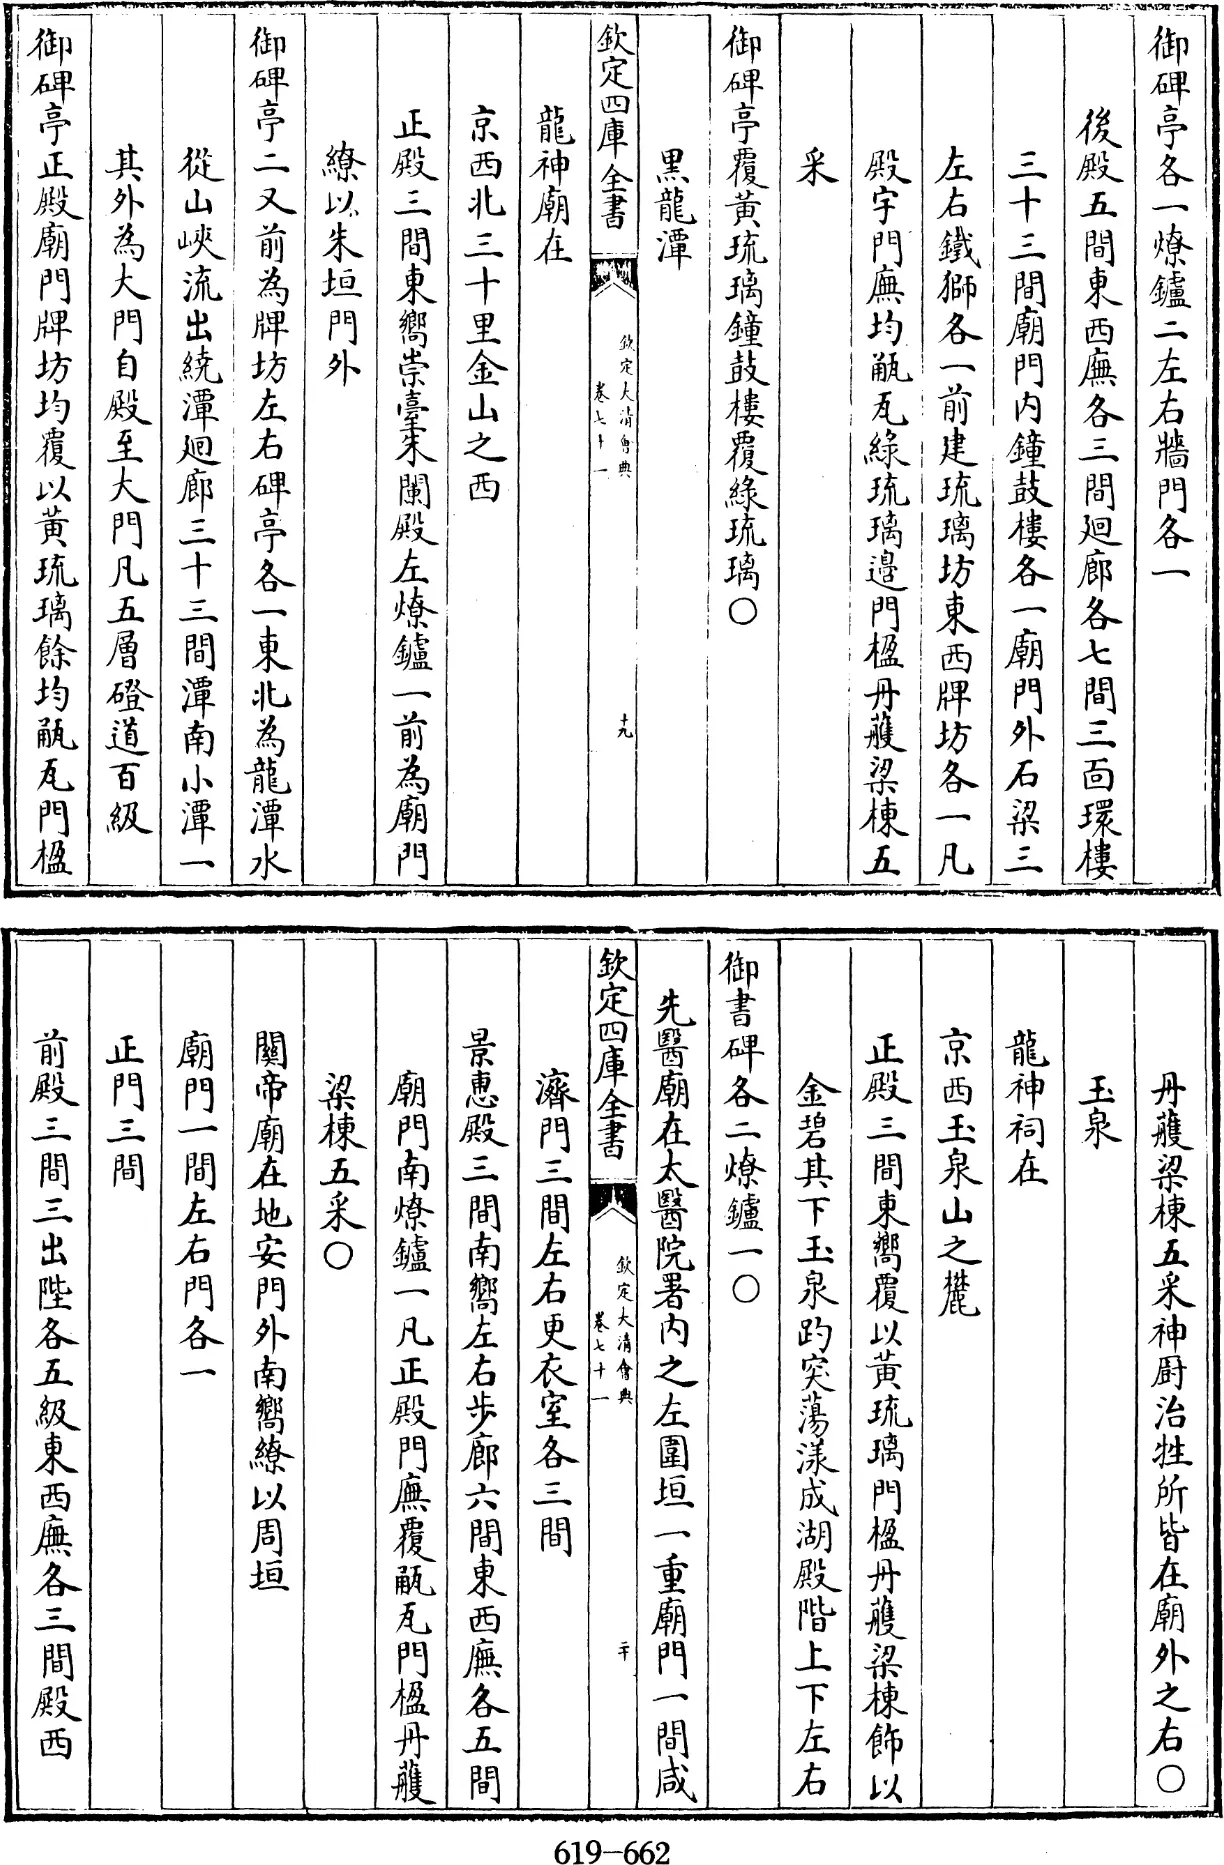 御碑亭各一燎鑪二左右牆門各一
後殿五間東西廡各三間廻廊各七間三面環樓
三十三間廟門内鐘鼓樓各一廟門外石梁三
左右鐵獅各一前建琉璃坊東西牌坊各一凡
殿宇門廡均甋瓦綠琉璃邊門楹丹雘梁棟五
采
御碑亭覆黃琉璃鐘鼓樓覆綠琉璃○
黑龍潭
欽定四庫全書
欽定大清會典
卷七十一
十九
龍神廟在
京西北三十里金山之西
正殿三間東嚮崇臺朱闌殿左燎鑪一前為廟門
繚以朱垣門外
御碑亭二又前為牌坊左右碑亭各一東北為龍潭水
從山峽流出繞潭廻廊三十三間潭南小潭一
其外為大門自殿至大門凡五層磴道百級
御碑亭正殿廟門牌坊均覆以黃琉璃餘均甋瓦門楹
丹雘梁棟五采神廚治牲所皆在廟外之右○
玉泉
龍神祠在
京西玉泉山之麓
正殿三間東嚮覆以黃琉璃門楹丹雘梁棟飾以
金碧其下玉泉趵突蕩漾成湖殿階上下左右
御書碑各二燎鑪一○
先醫廟在太醫院署内之左圍垣一重廟門一間咸
欽定四庫全書
欽定大清會典
卷七十一
二十
濟門三間左右更衣室各三間
景惠殿三間南嚮左右步廊六間東西廡各五間
廟門南燎鑪一凡正殿門廡覆甋瓦門楹丹雘
梁棟五采○
關帝廟在地安門外南嚮繚以周垣
廟門一間左右門各一
正門三間
前殿三間三出陛各五級東西廡各三間殿西
619—662